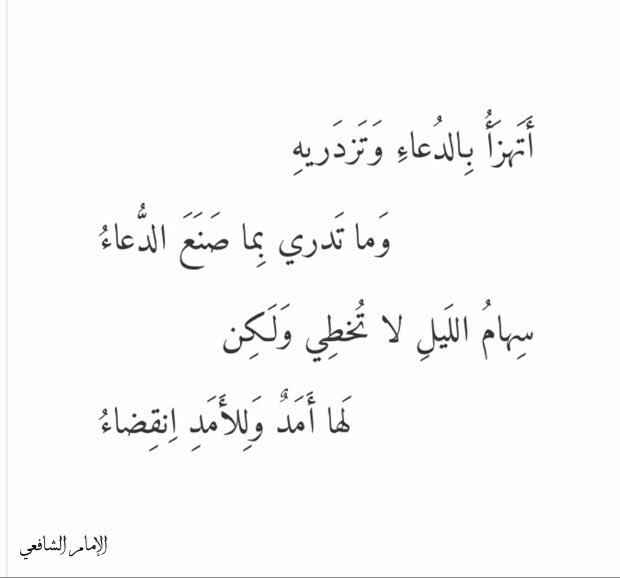 أَتَهزَأُ بِالدُعاءِ وَتَزدَريهِ
وَما تَدري بِما صَنَعَ الدُّعاءُ
سِهامُ اللَيلِ لا تُخطِي وَلَكِن
لَها أَمَدٌ وَلِلأَمَدِ اِنقِضاءُ
الإمام الشافعي